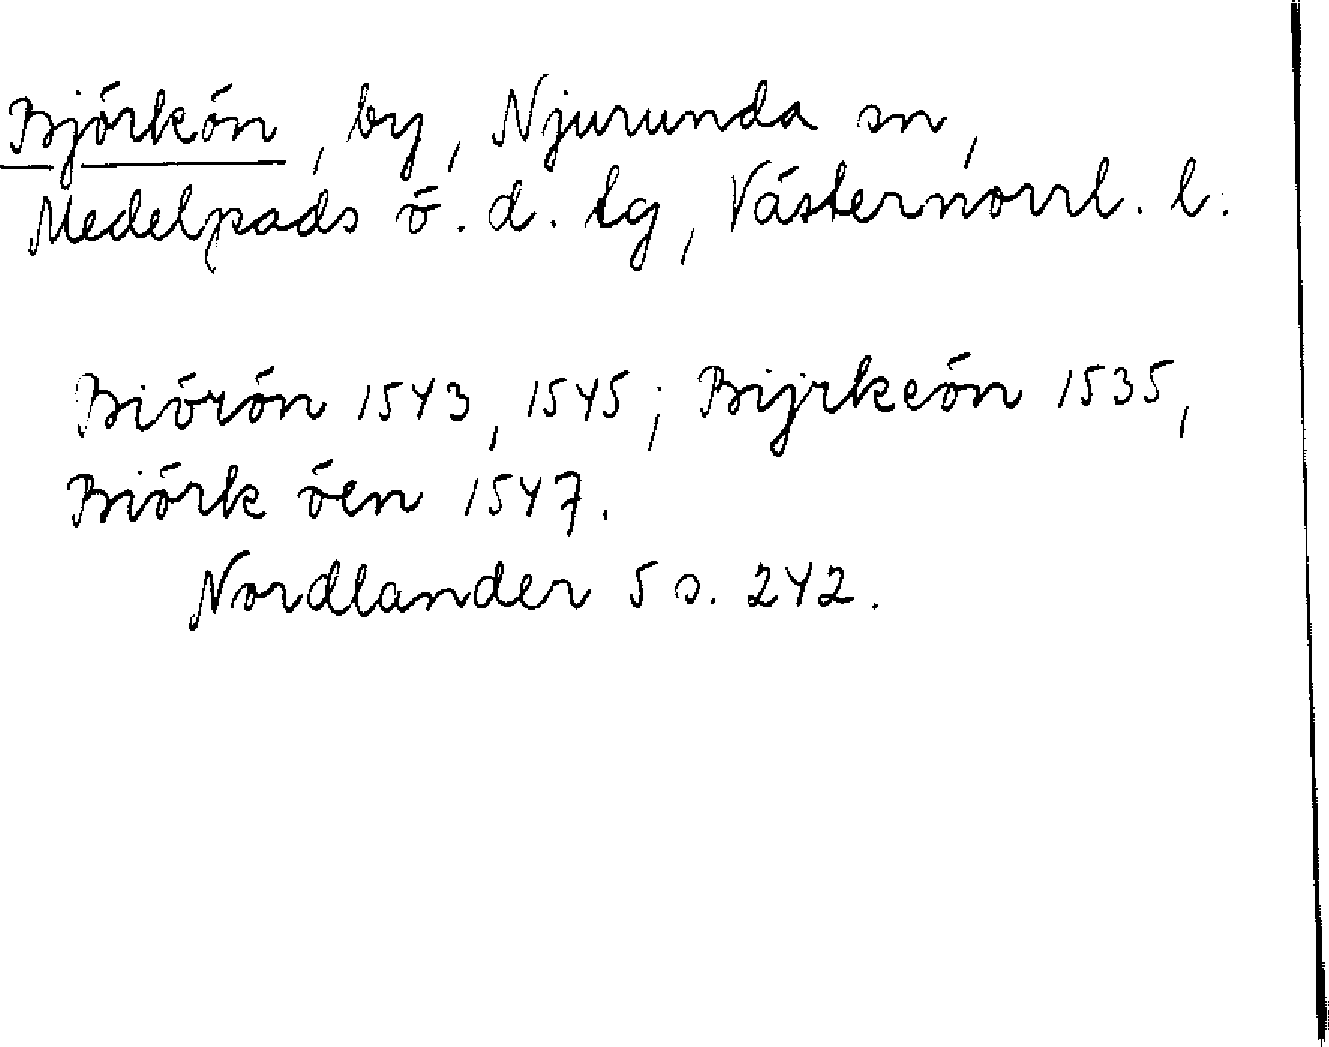 Björkön, by, Njurunda sn,
Medelpads ö. d. tg, Västernorrl. l.
Biörön 1543, 1545; Bijrkeön 1535,
Biörk öen 1547.
Nordlander 5 s. 242.